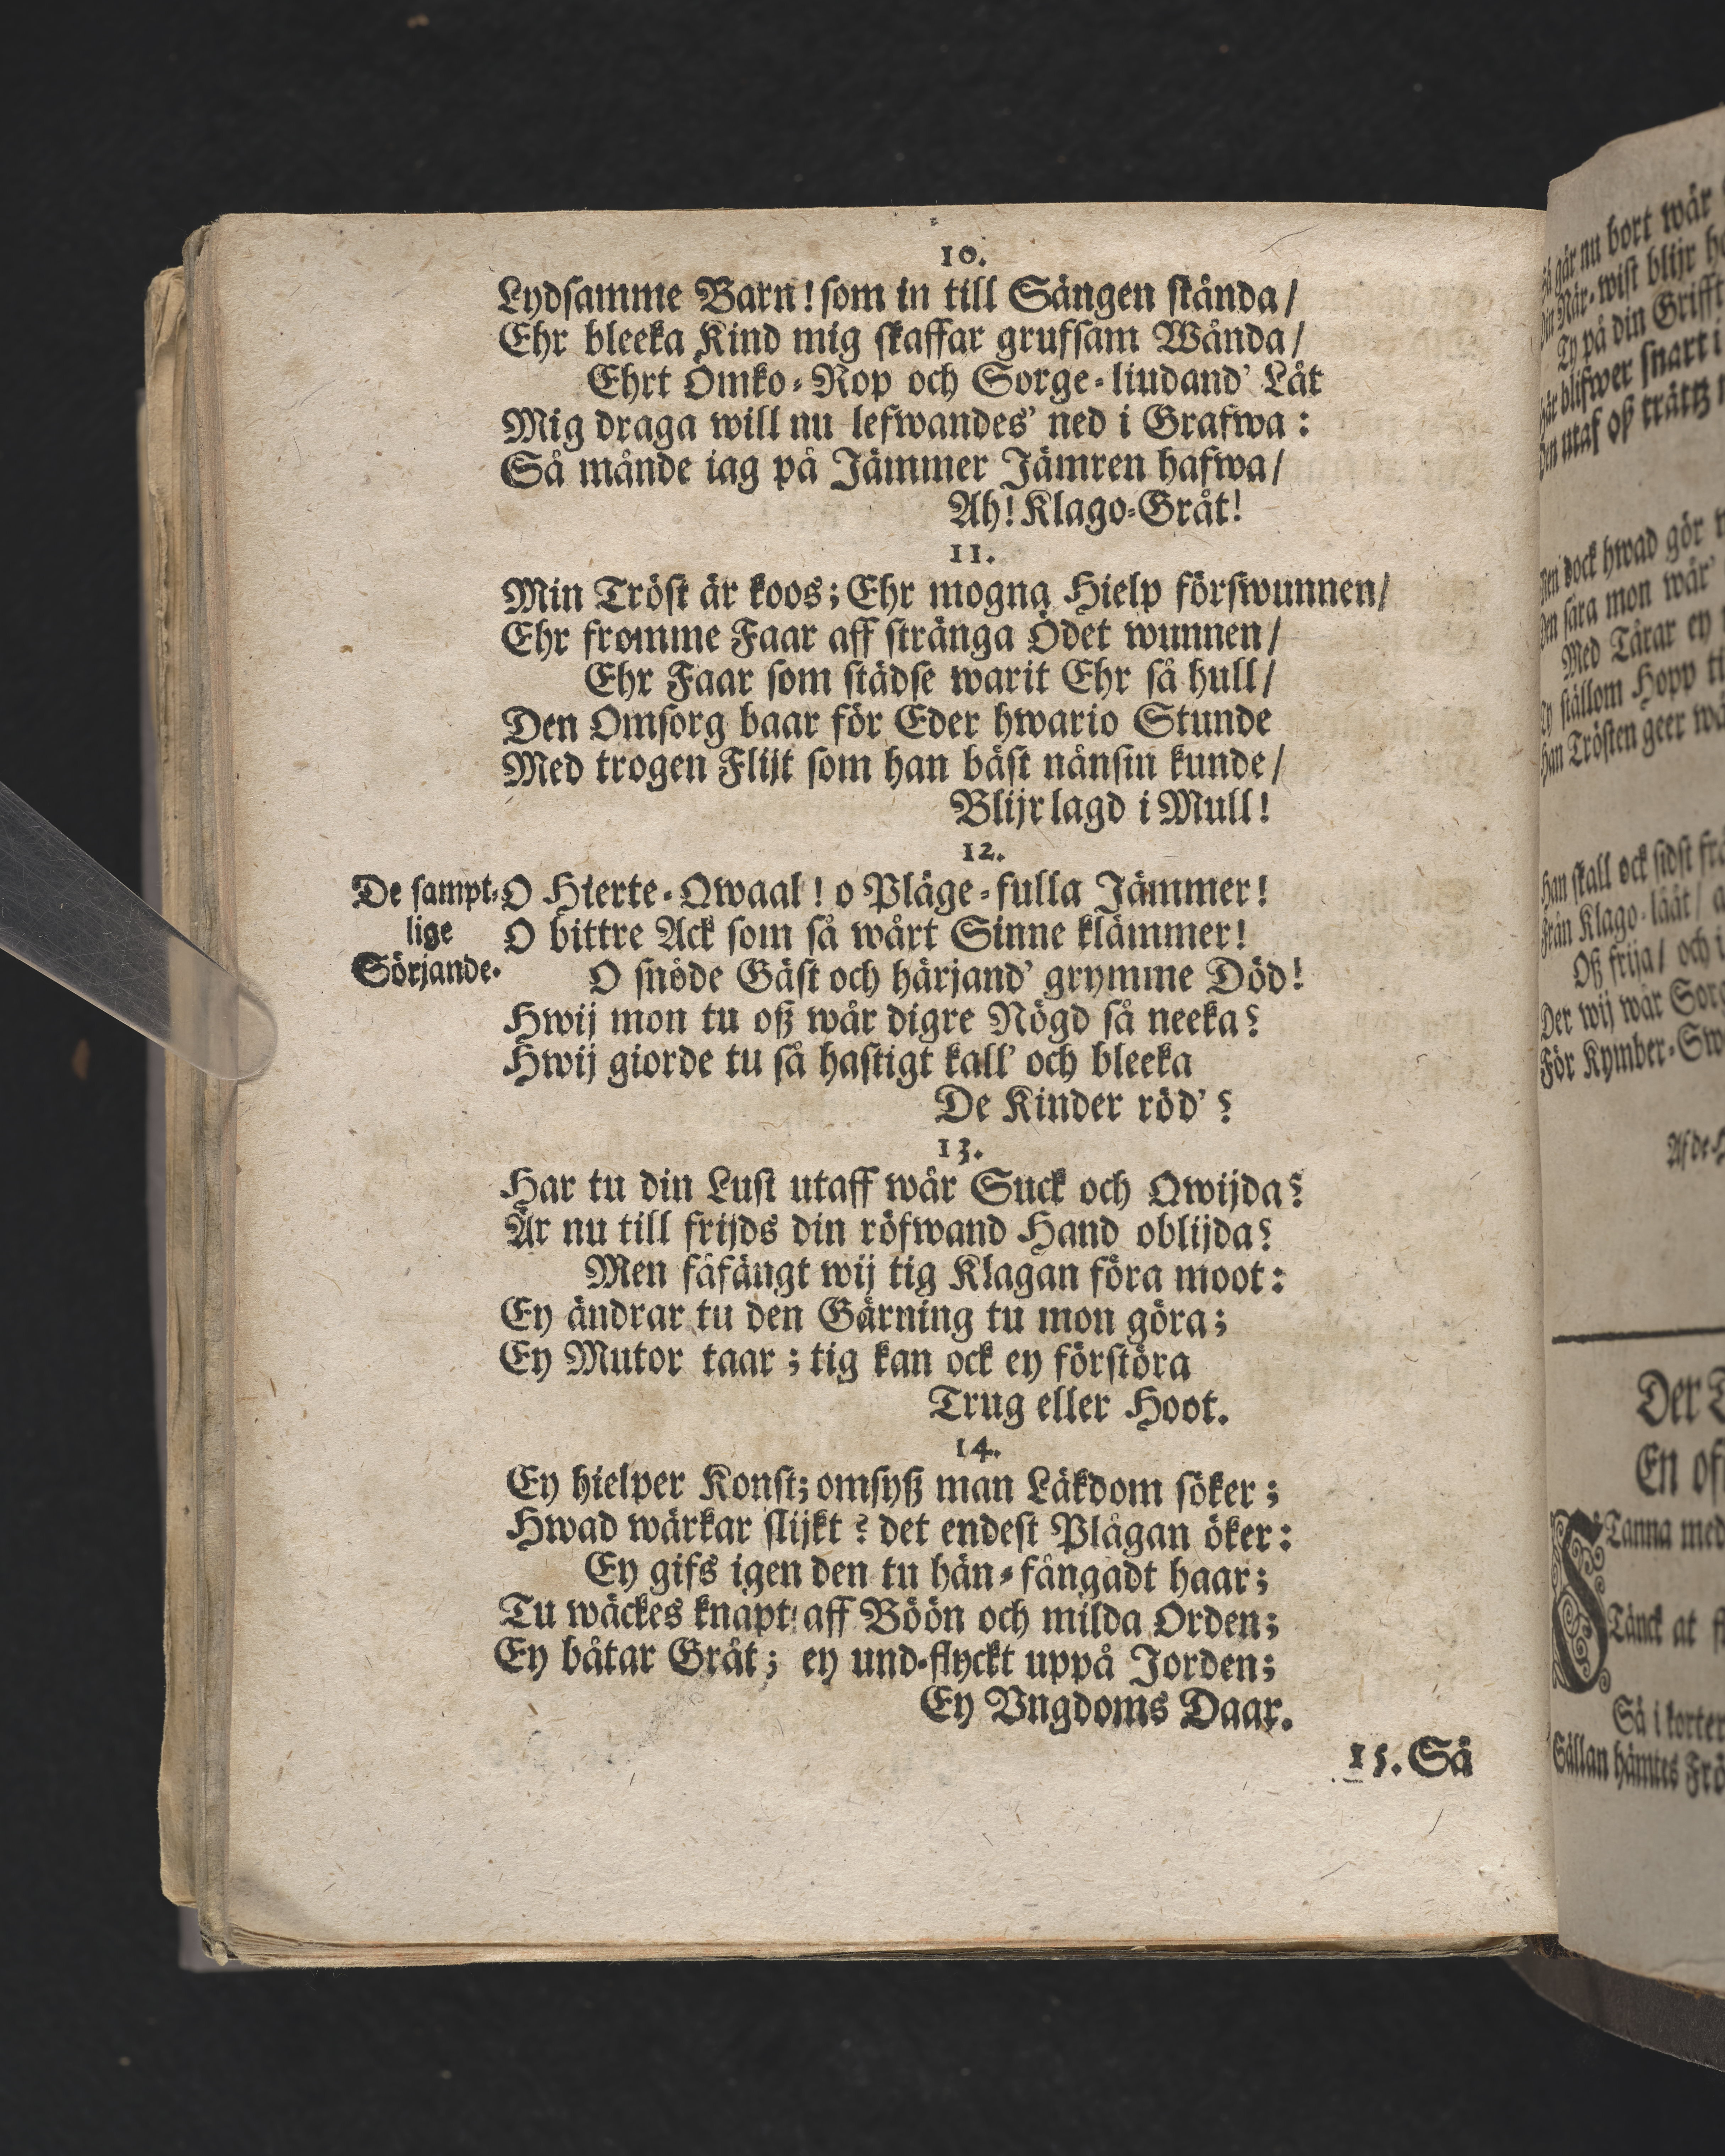 10.
Lydsamme Barn! som in till Sängen stånda/
Ehr bleeka Kind mig skaffar grufsam Wånda/
Ehrt Ömko-Rop och Sorge-liudand' Låt
Mig draga will nu lefwandes' ned i Grafwa:
Så månde iag på Jämmer Jämren hafwa/
Ah! Klago-Gråt!
11.
Min Tröst är koos; Ehr mogna Hielp förswunnen/
Ehr fromme Faar aff stränga Ödet wunnen/
Ehr Faar som städse warit Ehr så hull/
Den Omsorg baar för Eder hwario Stunde
Med trogen Flijt som han bäst nänsin kunde/
Blijr lagd i Mull!
12.
De sampt-
lige
Sörjande.
O Hierte-Qwaal! o Pläge-fulla Jämmer!
O bittre Ack som så wårt Sinne klämmer!
O snöde Gäst och härjand' grymme Död!
Hwij mon tu oß wår digre Nögd så neeka?
Hwij giorde tu så hastigt kall' och bleeka
De Kinder röd'?
13.
Har tu din Lust utaff wår Suck och Qwijda?
Är nu till frijds din röfwand Hand oblijda?
Men fåfängt wij tig Klagan föra moot:
Ey ändrar tu den Gärning tu mon göra;
Ey Mutor taar; tig kan ock ey förstöra
Trug eller Hoot.
14.
Ey hielper Konst; omsyß man Läkdom söker;
Hwad wärkar slijkt? det endest Plågan öker:
Ey gifs igen den tu hän-fångadt haar;
Tu wäckes knapt aff Böön och milda Orden;
Ey båtar Gråt; ey und-flyckt uppå Jorden;
Ey Vngdoms Daar.
15. Så
går nu bort wår
När-wist blijr
Ty på din Grifft
blifwer snart i
utaf oß trättz
dock hwad gör
sara mon wår'
Med Tårar ey
ställom Hopp
Trösten geer
skall ock sidst
Klago-lååt/
Oß frija/ och i
Der wij wår
För Kymber-
Der
En
Tanna med
Tänck at
Så i korter
Sällan hämtes